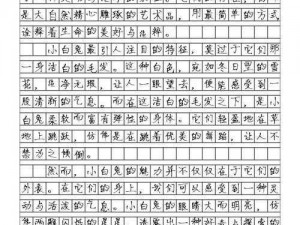 是大自然精心雕琢的艺术品，用最简单的方式
诠释着生命的美好与纯粹。
小白兔最引人注目的特征，莫过于它们那
一身洁白的毛发。这种白色，宛如冬日里的雪
花，纯净无瑕，让人一眼望去，便能感受到一
股清新的气息。而在这洁白的毛发之下，是小
白兔柔软而富有弹性的身体。它们轻盈地在草
地上跳跃，仿佛是在跳着优美的舞蹈，让人不
禁为之倾倒。
然而，小白兔的魅力并不仅仅在于它们的
外表。在它们的身上，我们可以感受到一种灵
动与活泼的气息。小白兔的眼睛大而明亮，仿